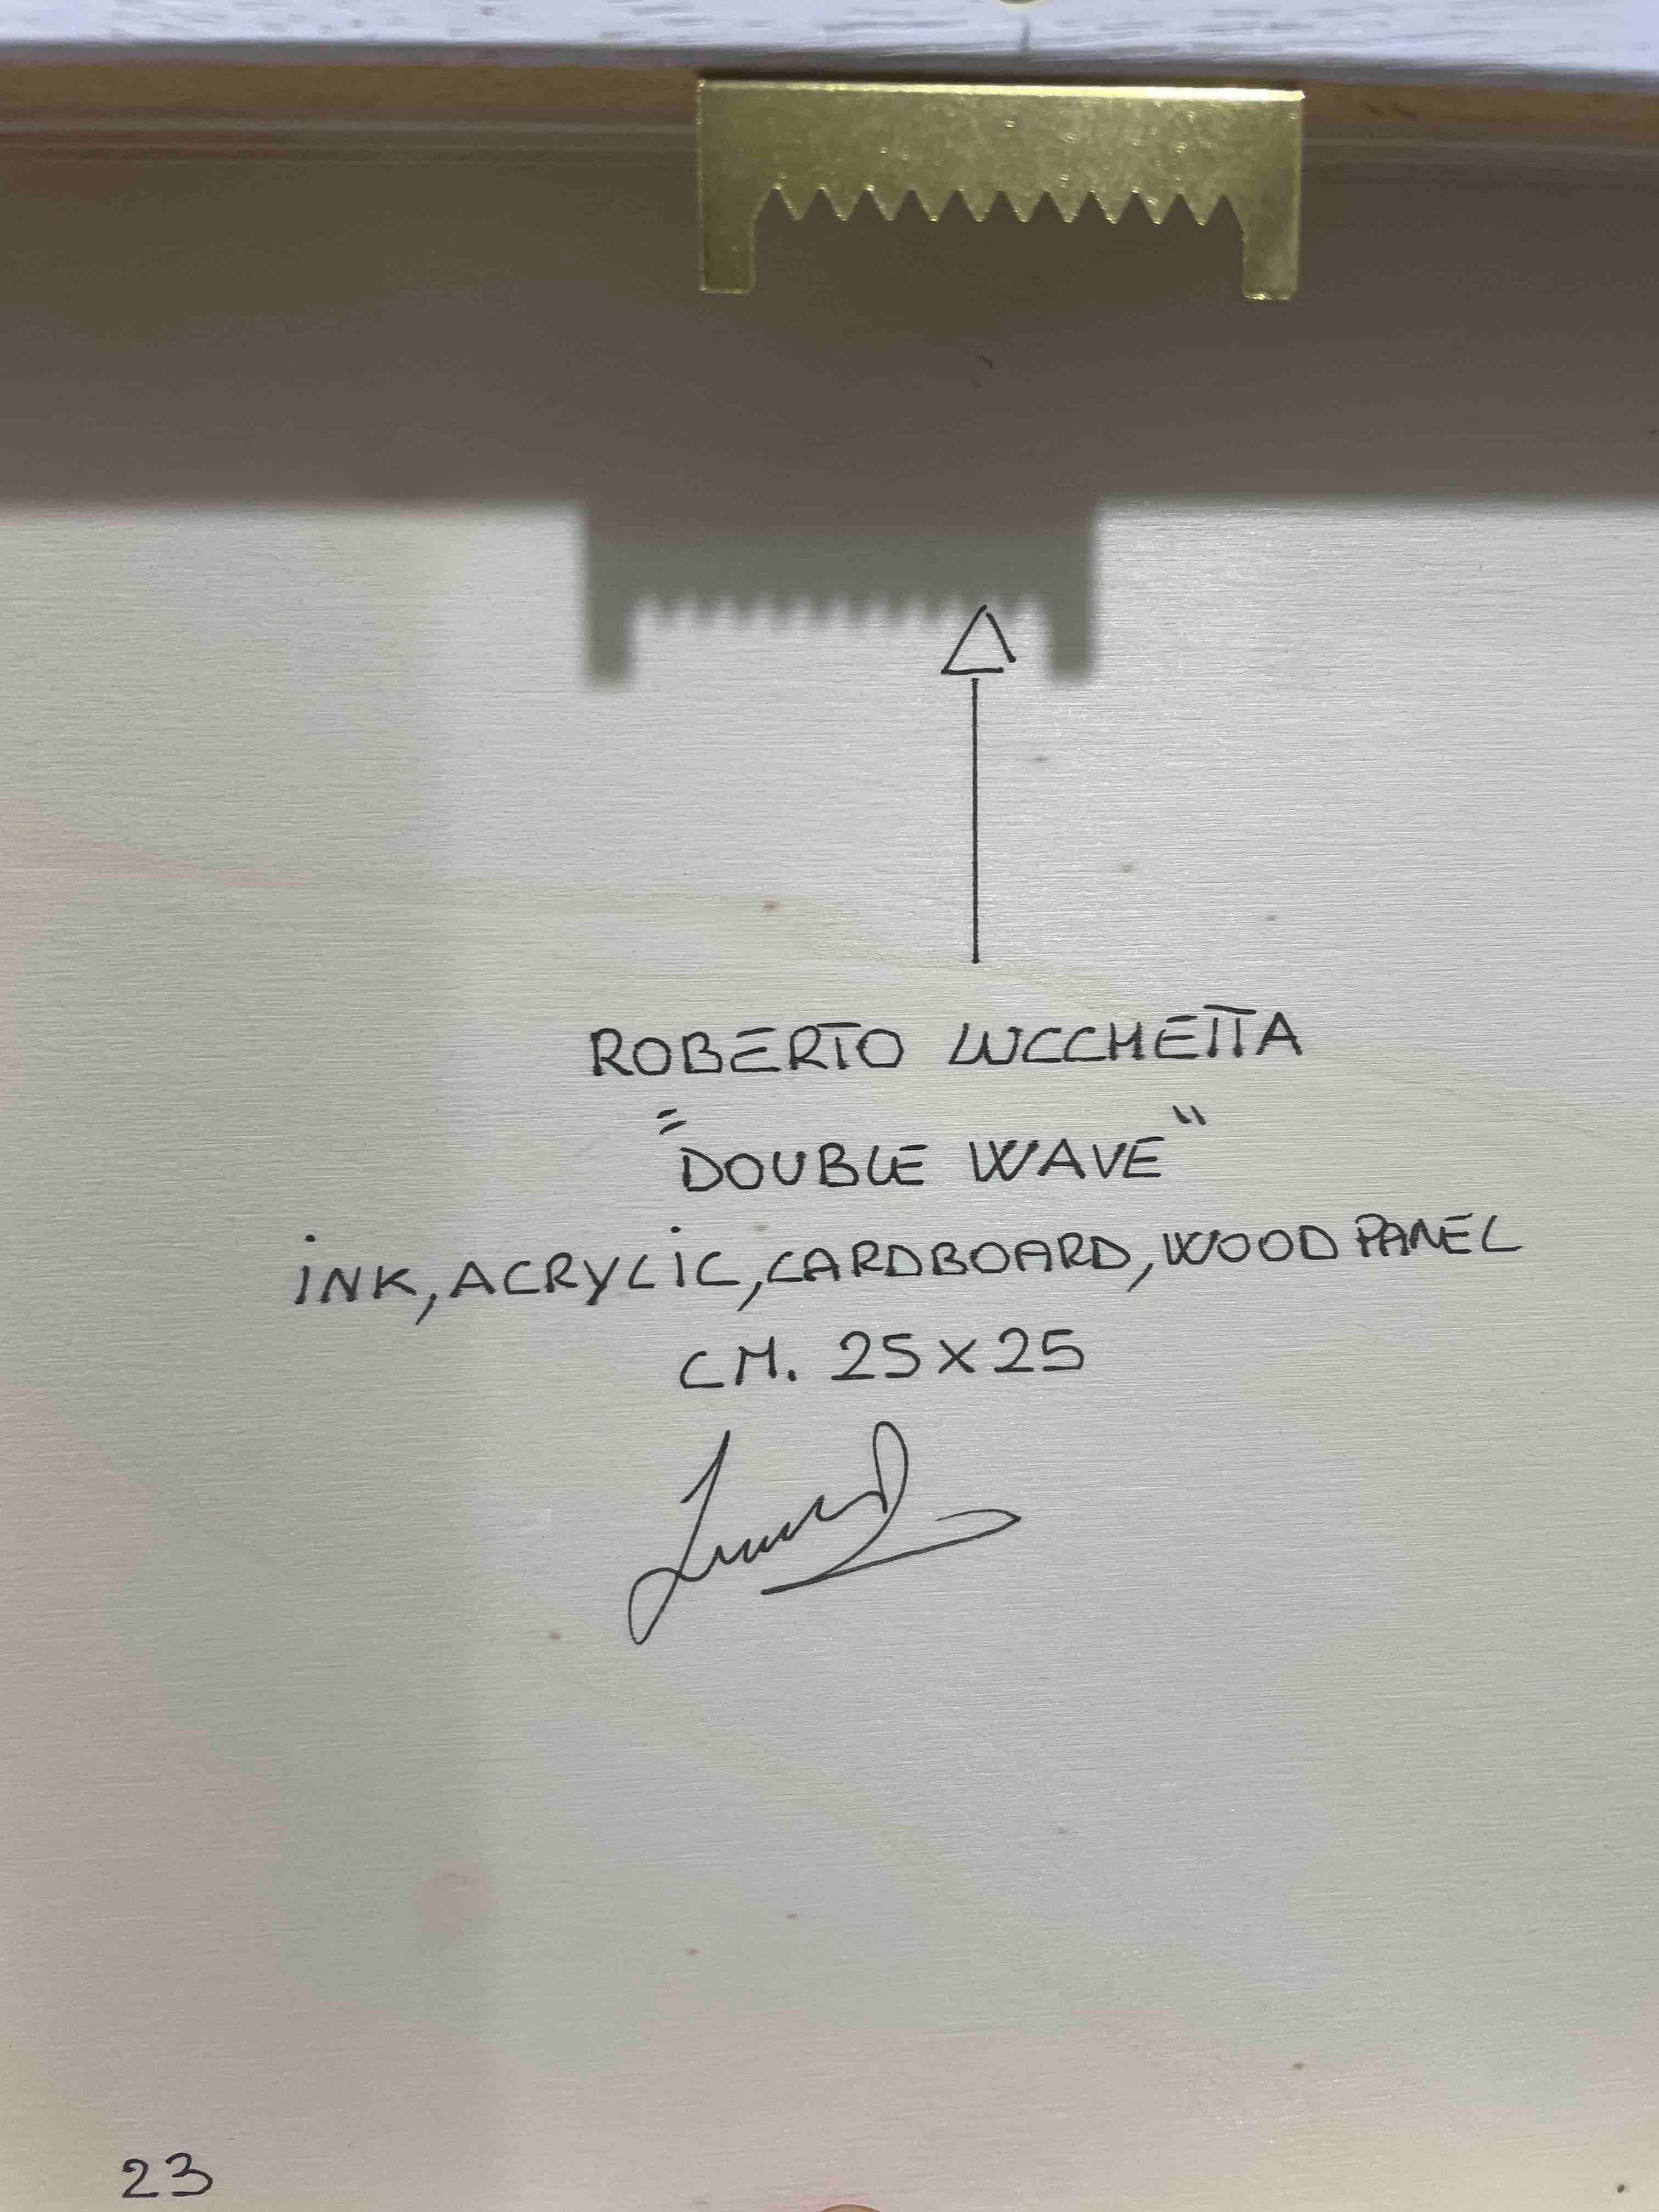 ROBERTO LUCCHETTA
"DOUBLE WAVE"
iNK, ACRYLiC, CARDBOARD, WOOD PANEL
CM. 25x25
23